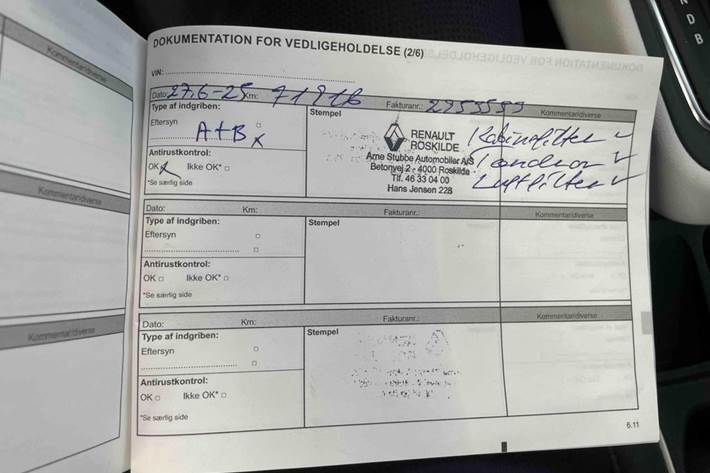 Kommentardiverse
Kommentardiverse
Kommentardiverse
DOKUMENTATION FOR VEDLIGEHOLDELSE (2/6)
VIN:
Dato: 27.6-25 Km: 71916 Fakturanr.: Kommentardiverse
Type af indgriben:
Eftersyn
A+B x
Antirustkontrol:
OK x Ikke OK*
*Se særlig side
Stempel
RENAULT
ROSKILDE
Arne Stubbe Automobiler A/S
Betonvej 2 - 4000 Roskilde
Tlf. 46 33 04 00
Hans Jensen 228
Kabinefilter ✓
Luftfilter ✓
Dato: Km: Fakturanr.: Kommentardiverse
Type af indgriben:
Eftersyn
Antirustkontrol:
OK Ikke OK*
*Se særlig side
Stempel
Dato: Km: Fakturanr.: Kommentardiverse
Type af indgriben:
Eftersyn
Antirustkontrol:
OK Ikke OK*
*Se særlig side
Stempel
6.11
N
D
B